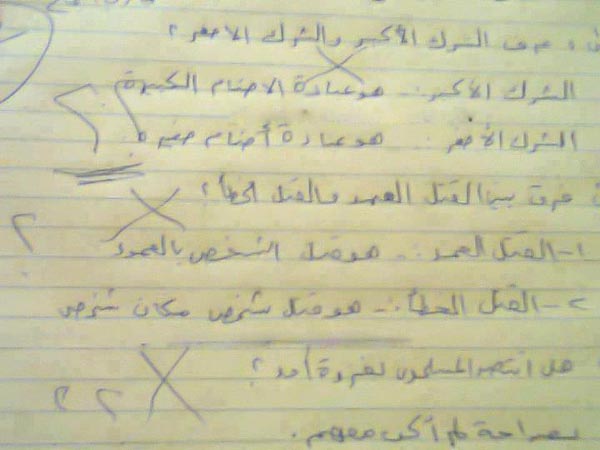 عرف الشرك الأكبر والشرك الاصغر ؟
الشرك الأكبر :- هو عبادة الاصنام الكبيرة
الشرك الأصغر : هو عبادة أصنام صغيرة
فرق بين القتل العمد والقتل الخطأ ؟
١- القتل العمد :- هو قتل الشخص بالعمود
٢- القتل الخطأ :- هو قتل شخص مكان شخص
هل انتصر المسلمون بغزوة أحد ؟
بصراحة لم أكن معهم .